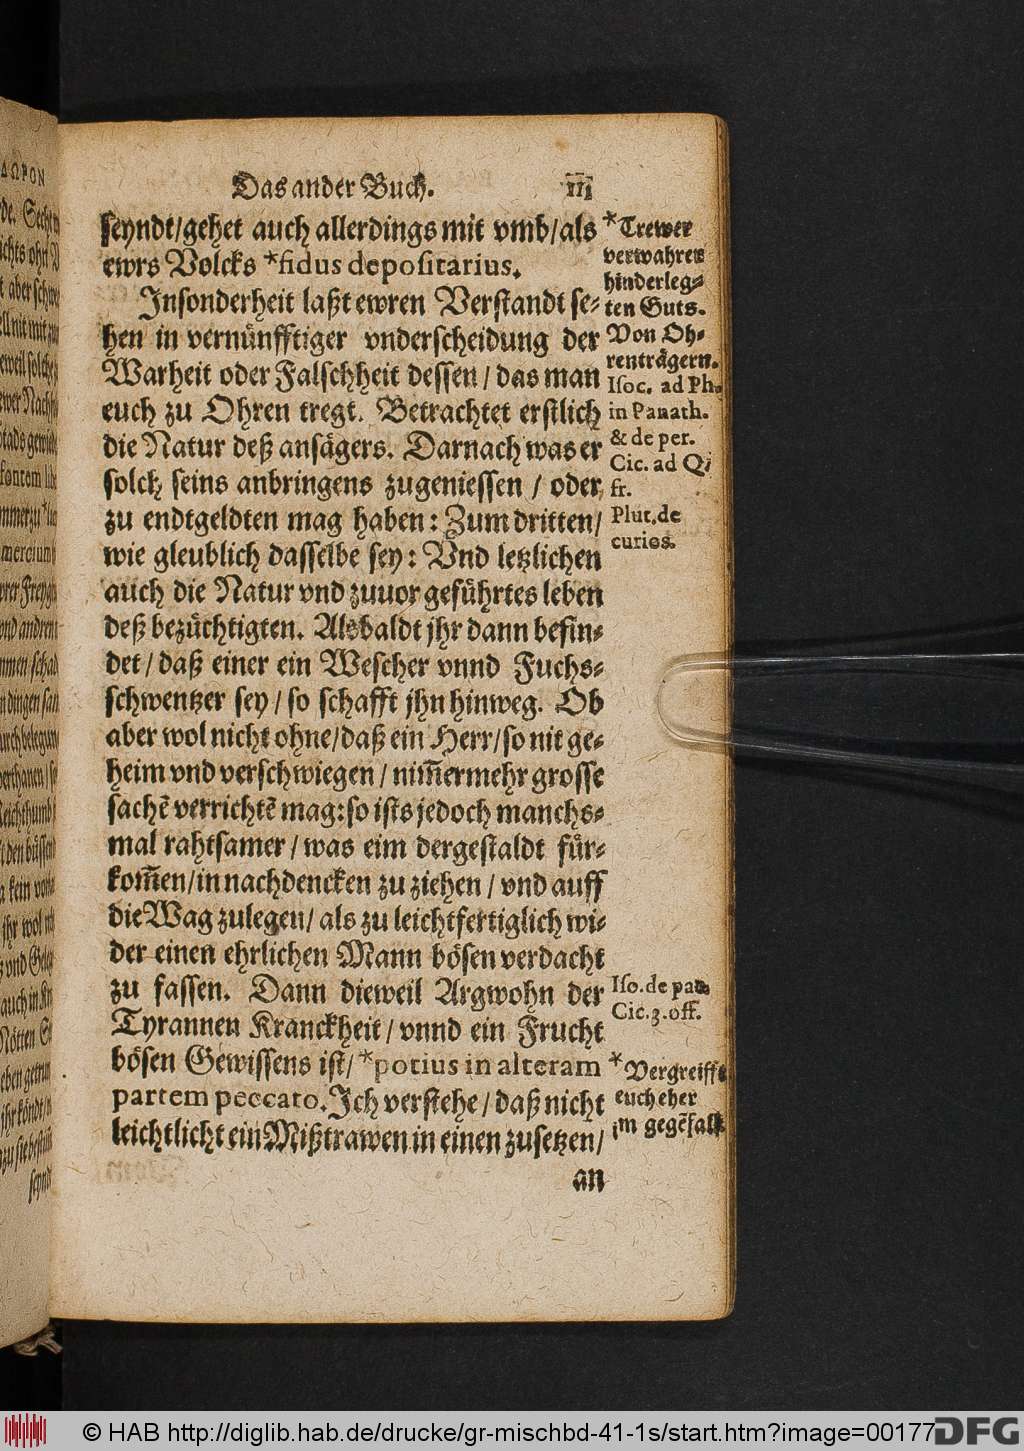 Das ander Buch. 111
seyndt/gehet auch allerdings mit vmb/als
ewrs Volcks *fidus depositarius.
Insonderheit laßt ewren Verstandt se-
hen in vernünfftiger vnderscheidung der
Warheit oder Falschheit dessen / das man
euch zu Ohren tregt. Betrachtet erstlich
die Natur deß ansägers. Darnach was er
solch seins anbringens zugeniessen / oder
zu endtgeldten mag haben: Zum dritten/
wie gleublich dasselbe sey: Vnd letzlichen
auch die Natur vnd zuuor geführtes leben
deß bezüchtigten. Alsbaldt jhr dann befin-
det / daß einer ein Wescher vnnd Fuchs-
schwentzer sey / so schafft jhn hinweg. Ob
aber wol nicht ohne/daß ein Herr/so nit ge-
heim vnd verschwiegen / nim̅ermehr grosse
sachē verrichtē mag: so ists jedoch manchs-
mal rahtsamer / was eim dergestaldt für-
kom̅en/in nachdencken zu ziehen / vnd auff
die Wag zulegen/ als zu leichtfertiglich wi-
der einen ehrlichen Mann bösen verdacht
zu fassen. Dann dieweil Argwohn der
Tyrannen Kranckheit / vnnd ein Frucht
bösen Gewissens ist/ *potius in alteram
partem peccato. Ich verstehe / daß nicht
leichtlicht ein Mißtrawen in einen zusetzen/
an
*Trewer
verwahrer
hinderleg-
ten Guts.
Von Oh-
renträgern.
Isoc. ad Ph.
in Panath.
& de per.
Cic. ad Q.
fr.
Plut. de
curios.
Iso. de pac.
Cic. 3. off.
*Vergreifft
euch eher
im gegēfall.
© HAB http://diglib.hab.de/drucke/gr-mischbd-41-1s/start.htm?image=00177
DFG